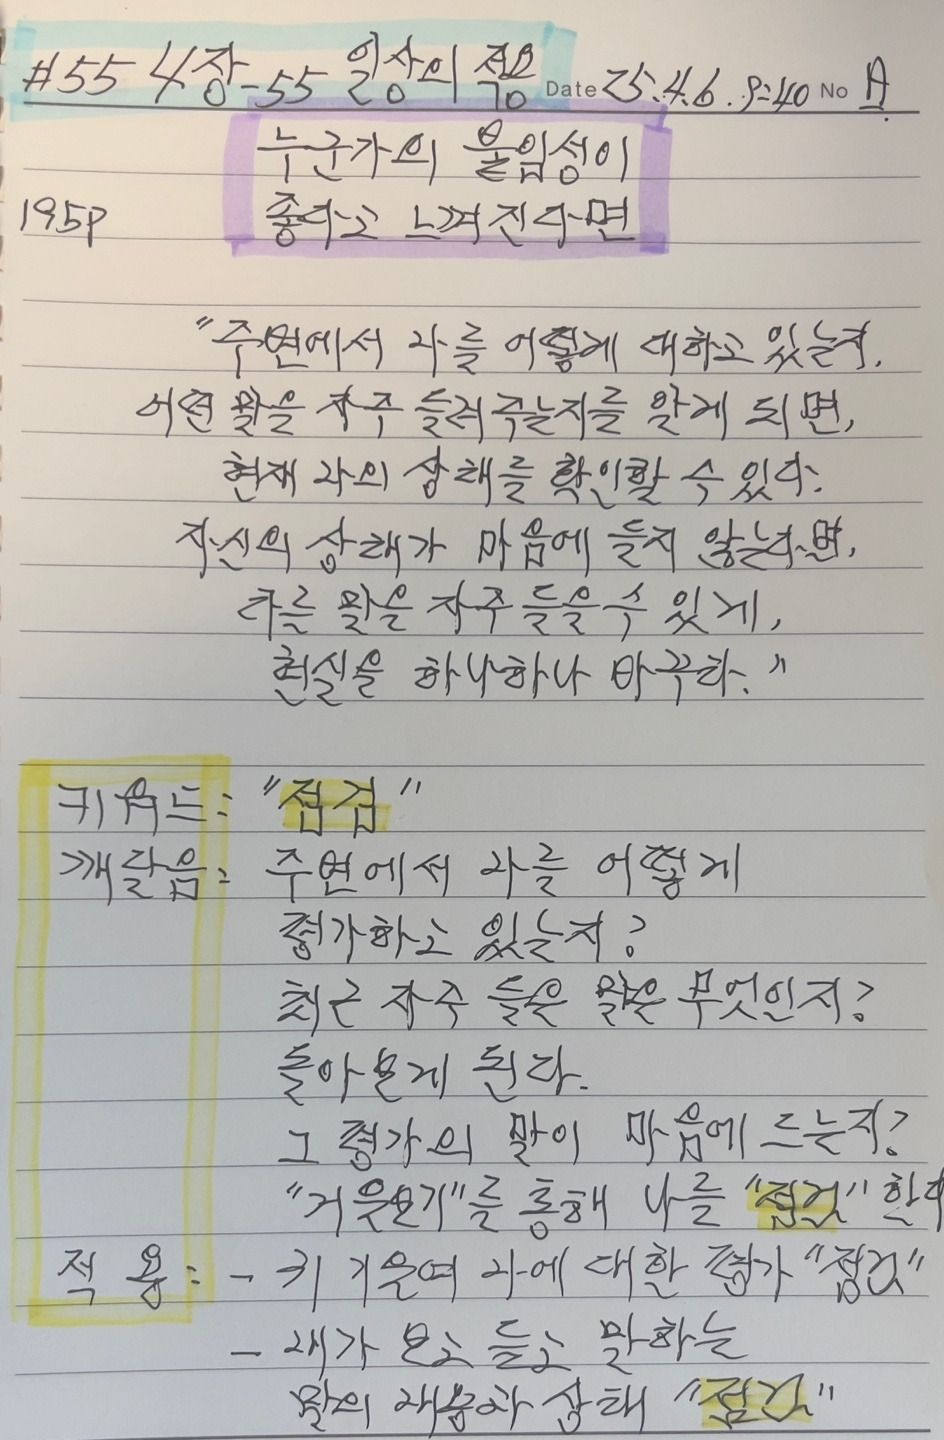 #55 4장-55 일상의 적용 Date 25.4.6. 9:40 No A
누군가의 몰입성이
195P 좋다고 느껴진다면
"주변에서 나를 어떻게 대하고 있는지,
어떤 말을 자주 들려주는지를 알게 되면,
현재 나의 상태를 확인할 수 있다.
자신의 상태가 마음에 들지 않는다면,
다른 말을 자주 들을 수 있게,
현실을 하나하나 바꾸라."
키워드: "점검"
깨달음: 주변에서 나를 어떻게
평가하고 있는지?
최근 자주 들은 말은 무엇인지?
돌아보게 된다.
그 평가의 말이 마음에 드는지?
"거울보기"를 통해 나를 "점검" 한다
적 용: - 귀 기울여 나에 대한 평가 "점검"
- 내가 보고 듣고 말하는
말의 내용과 상태 "점검"